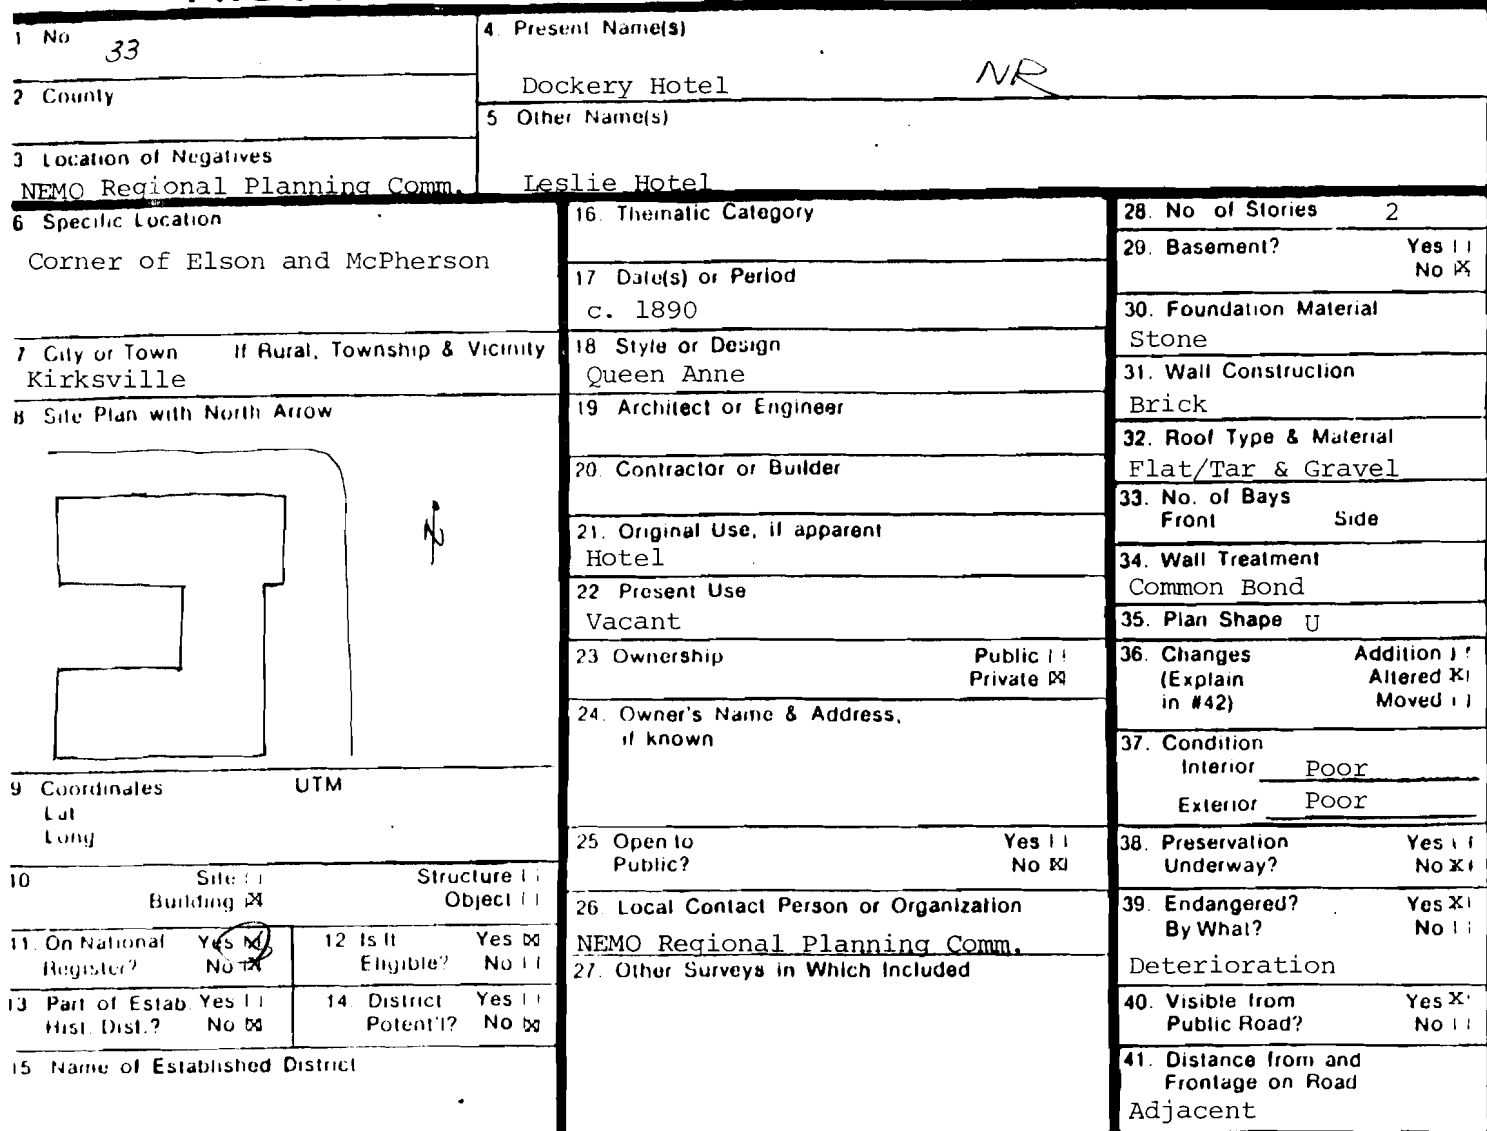 1 No 33
2 County
3 Location of Negatives
NEMO Regional Planning Comm.
4 Present Name(s)
Dockery Hotel NR
5 Other Name(s)
Leslie Hotel
6 Specific Location
Corner of Elson and McPherson
7 City or Town If Rural, Township & Vicinity
Kirksville
8 Site Plan with North Arrow
N
9 Coordinates UTM
Lat
Long
10 Site [ ] Structure [ ]
Building [X] Object [ ]
11. On National Yes [X]
Register? No [X]
12 Is It Yes [X]
Eligible? No [ ]
13 Part of Estab. Yes [ ]
Hist. Dist.? No [X]
14 District Yes [ ]
Potent'l? No [X]
15 Name of Established District
16. Thematic Category
17 Date(s) or Period
c. 1890
18 Style or Design
Queen Anne
19 Architect or Engineer
20. Contractor or Builder
21. Original Use, if apparent
Hotel
22 Present Use
Vacant
23 Ownership Public [ ]
Private [X]
24. Owner's Name & Address,
if known
25 Open to Yes [ ]
Public? No [X]
26. Local Contact Person or Organization
NEMO Regional Planning Comm.
27. Other Surveys in Which Included
28. No of Stories 2
29. Basement? Yes [ ]
No [X]
30. Foundation Material
Stone
31. Wall Construction
Brick
32. Roof Type & Material
Flat/Tar & Gravel
33. No. of Bays
Front Side
34. Wall Treatment
Common Bond
35. Plan Shape U
36. Changes Addition [ ]
(Explain Altered [X]
in #42) Moved [ ]
37. Condition
Interior Poor
Exterior Poor
38. Preservation Yes [ ]
Underway? No [X]
39. Endangered? Yes [X]
By What? No [ ]
Deterioration
40. Visible from Yes [X]
Public Road? No [ ]
41. Distance from and
Frontage on Road
Adjacent